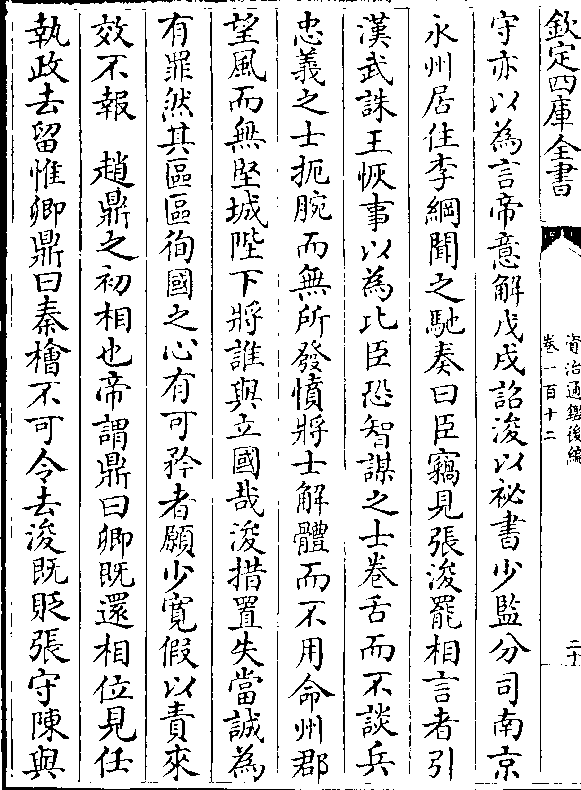 欽定四庫全書
資治通鑑後編
卷一百十二
二十
守亦以為言帝意解戊戌詔浚以祕書少監分司南京
永州居住李綱聞之馳奏曰臣竊見張浚罷相言者引
漢武誅王恢事以為比臣恐智謀之士卷舌而不談兵
忠義之士扼腕而無所發憤將士解體而不用命州郡
望風而無堅城陛下將誰與立國哉浚措置失當誠為
有罪然其區區徇國之心有可矜者願少寛假以責來
效不報　趙鼎之初相也帝謂鼎曰卿既還相位見任
執政去留惟卿鼎曰秦檜不可令去浚既貶張守陳與